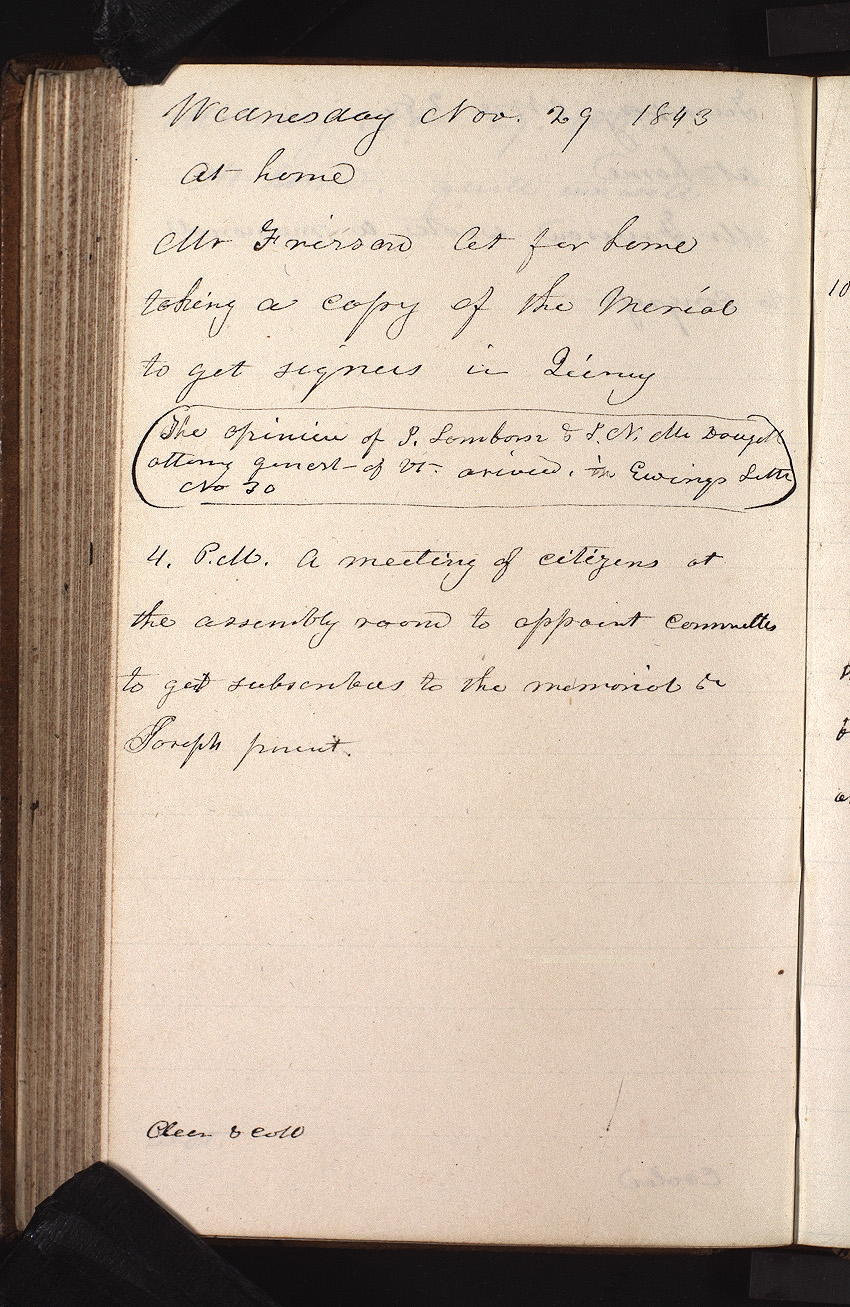 Wednesday Nov. 29 1843
at home
Mr Frierson Set for home
taking a copy of the Merial
to get signers in Quincy
The opinion of J. Lamborn & J. N. Mc Dougall
attorny generl of Ill. arived. in Ewings Lette
No 30
4. P.M. A meeting of citizens at
the assembly room to appoint Committes
to get subscribers to the memorial &c
Joseph presnt.
Clear & cold
10